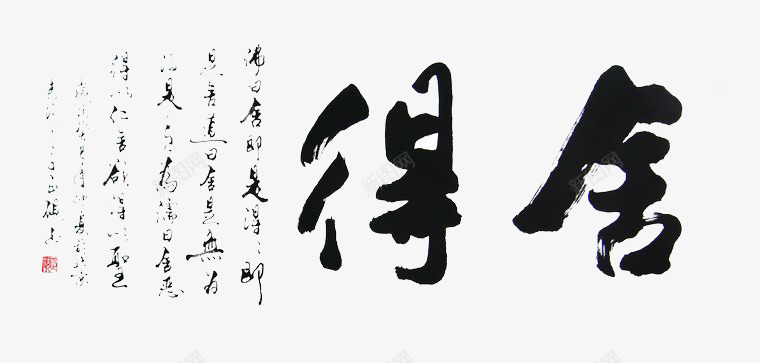 舍得
佛曰舍即是得得即
是舍道曰舍是無为
得是有为儒曰舍惡
得以仁舍欲得以聖